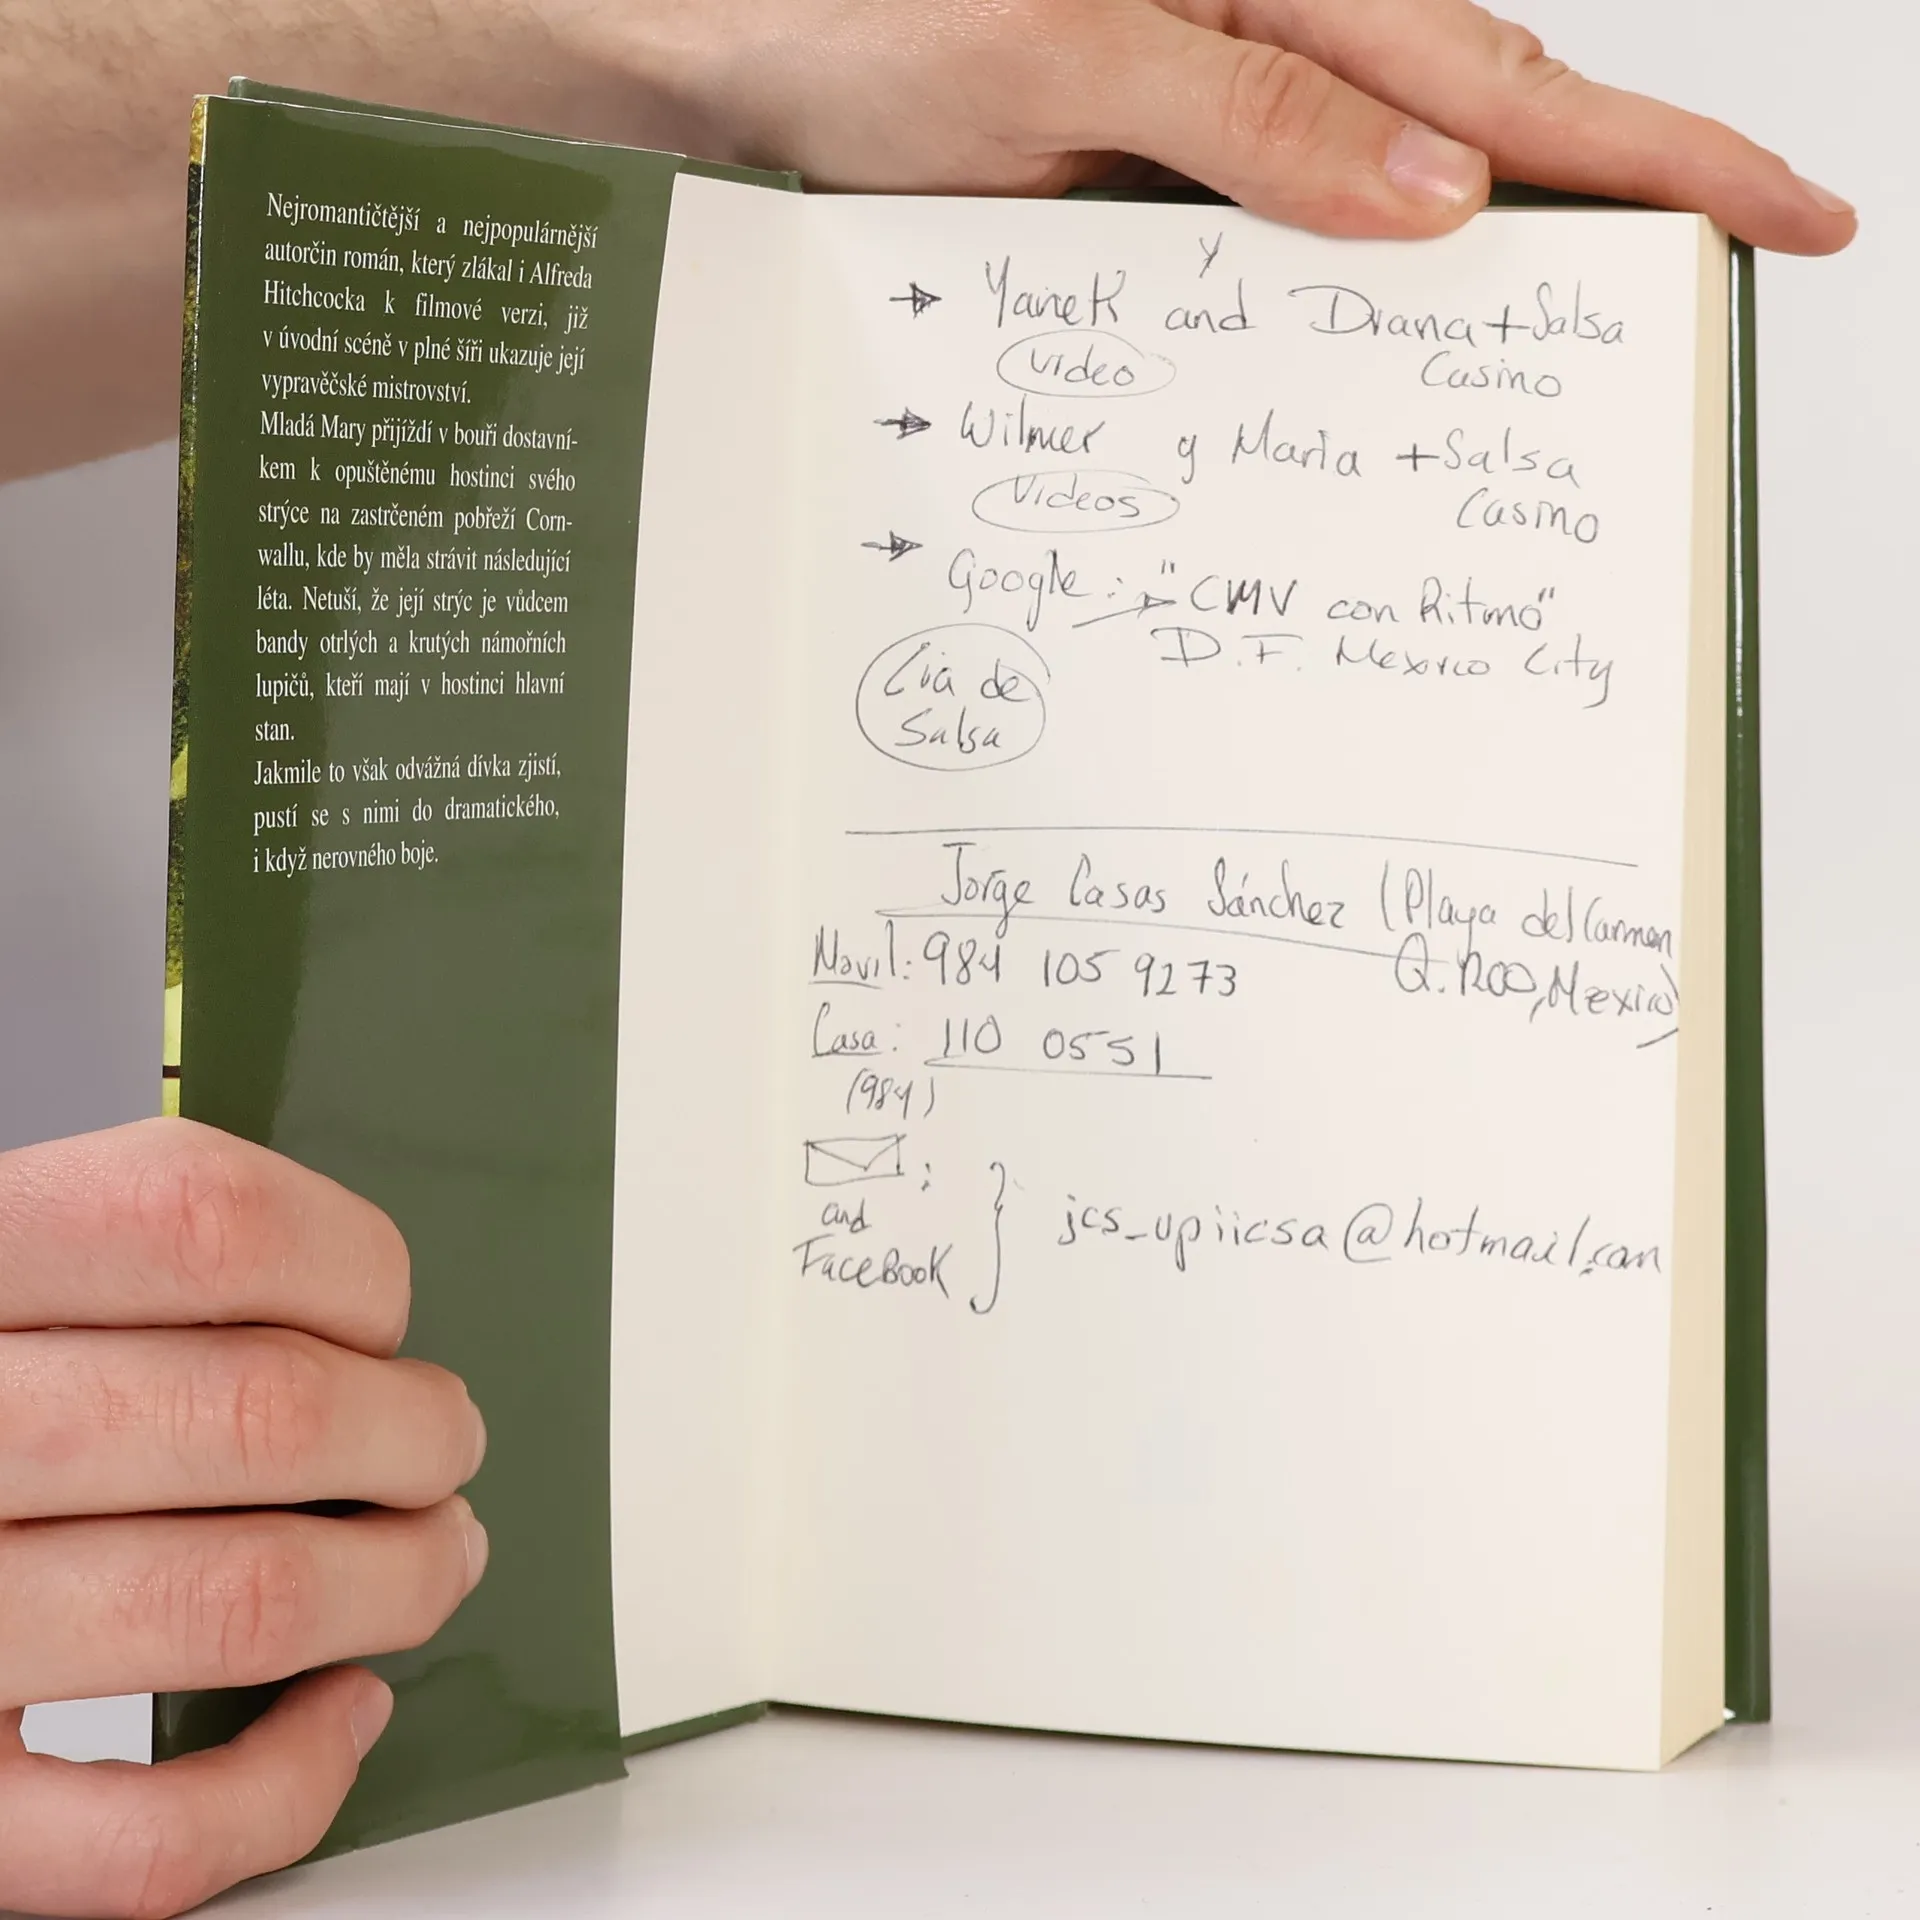 Nejromantičtější a nejpopulárnější
autorčin román, který zlákal i Alfreda
Hitchcocka k filmové verzi, již
v úvodní scéně v plné šíři ukazuje její
vypravěčské mistrovství.
Mladá Mary přijíždí v bouři dostavní-
kem k opuštěnému hostinci svého
strýce na zastrčeném pobřeží Corn-
wallu, kde by měla strávit následující
léta. Netuší, že její strýc je vůdcem
bandy otrlých a krutých námořních
lupičů, kteří mají v hostinci hlavní
stan.
Jakmile to však odvážná dívka zjistí,
pustí se s nimi do dramatického,
i když nerovného boje.
y
Yanek and Diana + Salsa
video Casino
Wilmer y Maria + Salsa
videos Casino
Google: "CMV con Ritmo"
D.F. Mexico City
Cia de
Salsa
Jorge Casas Sánchez (Playa del Carmen
Q. Roo, Mexico)
Movil: 984 105 9273
Casa: 110 0551
(984)
:
and
FaceBook
} jcs_upiicsa@hotmail.com